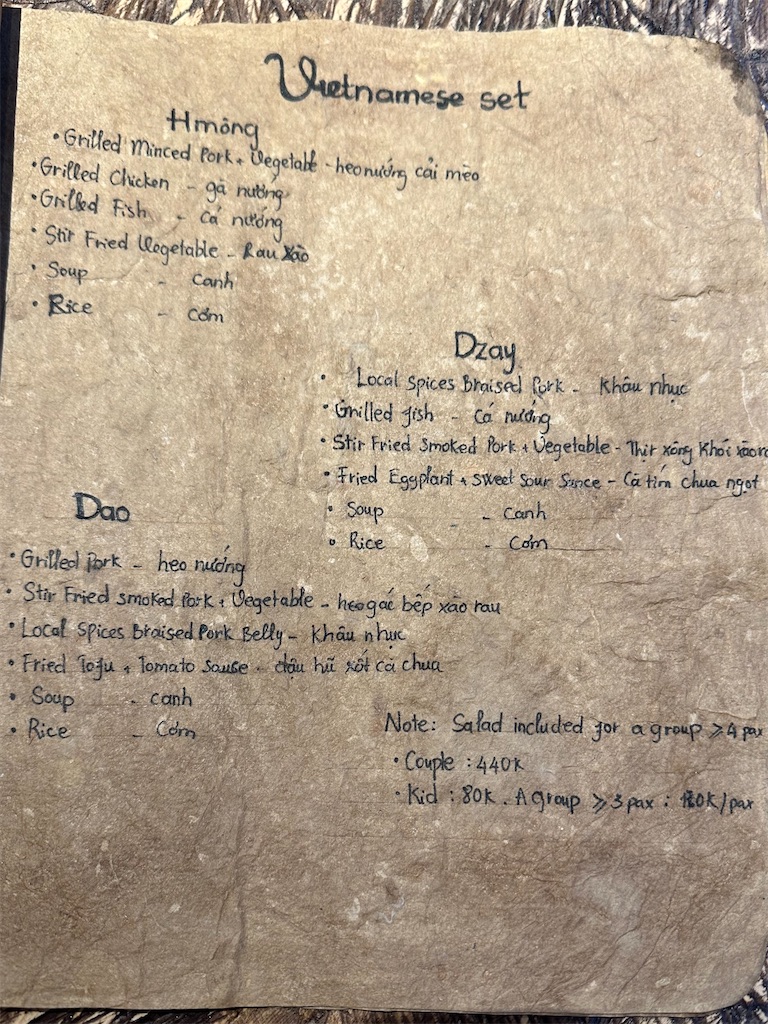 Vietnamese set
Hmông
• Grilled Minced Pork + Vegetable - heo nướng cải mèo
• Grilled Chicken - gà nướng
• Grilled Fish - cá nướng
• Stir Fried Vegetable - Rau xào
• Soup - canh
• Rice - cơm
Dzay
• Local Spices Braised Pork - Khâu nhục
• Grilled fish - cá nướng
• Stir Fried Smoked Pork + Vegetable - Thịt xông khói xào
• Fried Eggplant + sweet sour Sauce - Cà tím chua ngọt
• Soup - canh
• Rice - Cơm
Dao
• Grilled Pork - heo nướng
• Stir Fried smoked Pork + Vegetable - heo gác bếp xào rau
• Local Spices Braised Pork Belly - Khâu nhục
• Fried Tofu + Tomato Sause - đậu hũ xốt cà chua
• Soup - canh
• Rice - Cơm
Note: Salad included for a group ≥ 4 pax
• Couple : 440k
• Kid : 80k. A group ≥ 3 pax : /pax